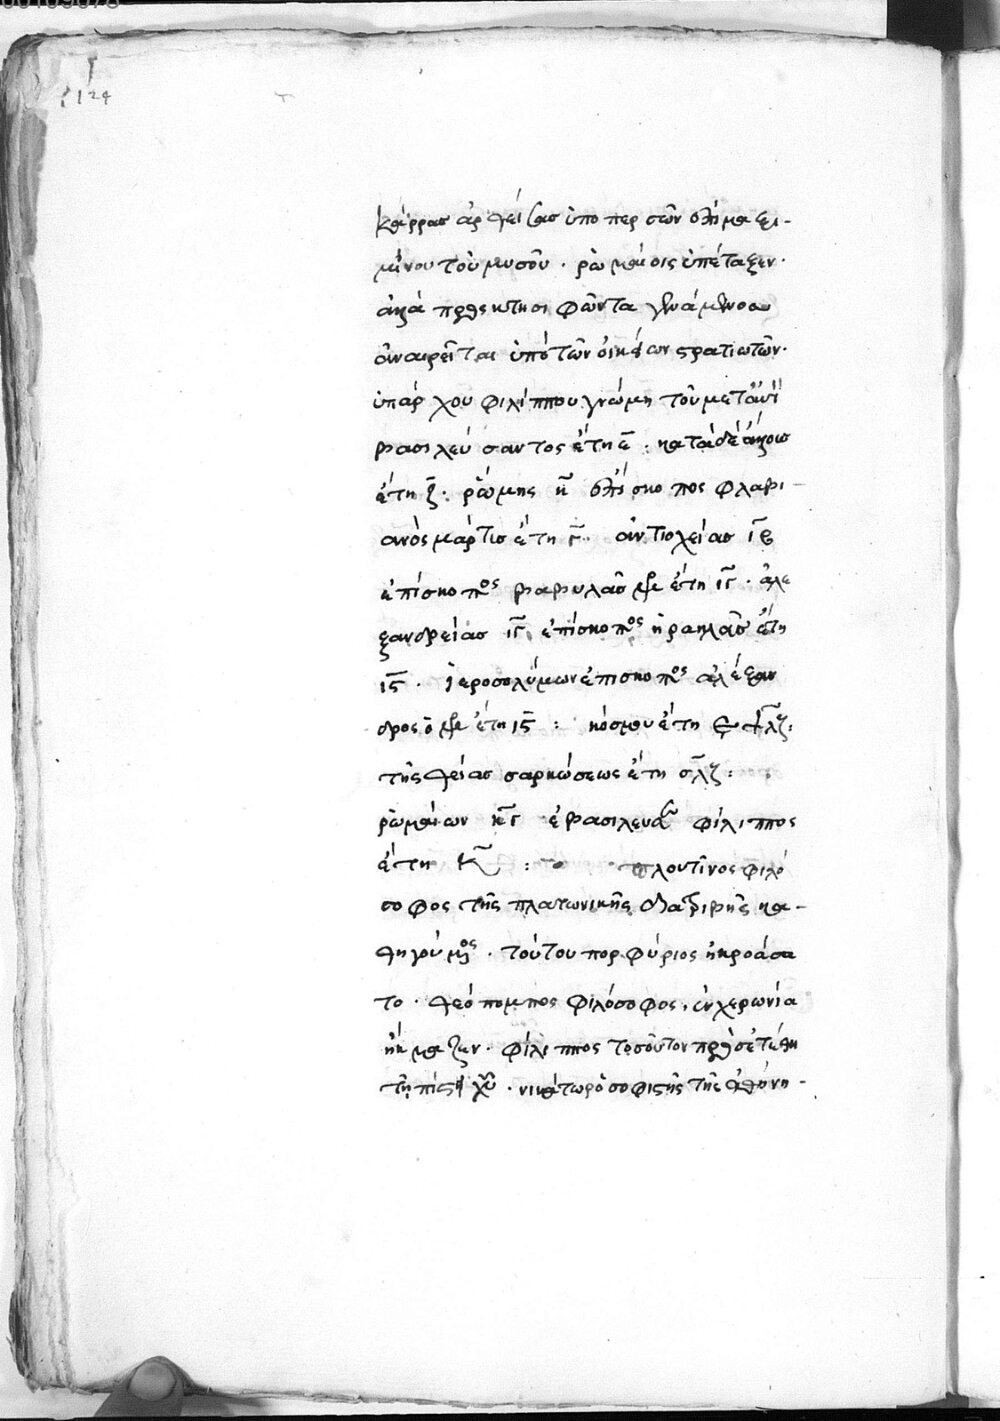 124
κάρρας ἀρθείσας ὑπο περσῶν ἐπὶ μαξι-
μίνου τοῦ μυσοῦ · ῥωμαίοις ὑπέταξεν ·
ἀλλὰ πρὸς κτησιφῶντα γενάμενος
ἀναιρεῖται ὑπὸ τῶν οἰκείων στρατιωτῶν ·
ὑπάρχου φιλίππου γνώμῃ τοῦ μετ' αὐτὸν
βασιλεύσαντος ἔτη ε̅ : κατὰ δὲ ἄλλους
ἔτη ζ̅ : ῥώμης κ̅ ἐπίσκοπος φλαβι-
ανὸς μάρτις ἔτη γ̅ · ἀντιοχείας ιβ̅
ἐπίσκοπος βαβυλᾶς ἔτη ιγ̅ · ἀλε
ξανδρείας ιγ̅ ἐπίσκοπος ἡρακλᾶς ἔτη
ις̅ · ἱεροσολύμων ἐπίσκοπος ἀλέξαν
δρος ὁ ἔτη ις̅ : κόσμου ἔτη ͵εψλζ :
τῆς θείας σαρκώσεως ἔτη σλζ :
ῥωμαίων κγ̅ ἐβασίλευσεν φίλιππος
ἔτη : πλουτῖνος φιλό
σοφος τῆς πλατωνικῆς διατριβῆς κα-
θηγούμενος · τούτου πορφύριος ἠκροάσα
το · θεόπομπος φιλόσοφος, ἐν χερωνία
ἤκμαζεν · φίλιππος τοσοῦτον προσετέθη
τῇ πίστει χυ · νικάτωρ ὁ σοφιστὴς τῆς ἀθήνη-